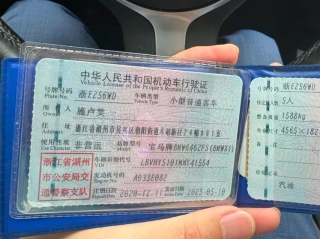 中华人民共和国机动车行驶证
Vehicle License of the People's Republic of China
号牌号码 浙E256WD 车辆类型 小型普通客车
Plate No. Vehicle Type
所有人
Owner
住址 浙江省湖州市吴兴区
Address
使用性质 非营运 品牌型号 宝马牌BMW6462FS(BMWX1)
Use Character Model
浙江省湖州
市公安局交
通警察支队
车辆识别代号
VIN
发动机号码 A033E082
Engine No.
注册日期 2020-12-11 发证日期 2023-05-10
号牌号码 浙E256WD
核定载人数 5人
整备质量 1588kg
外廓尺寸 4565×182
备注
汽油